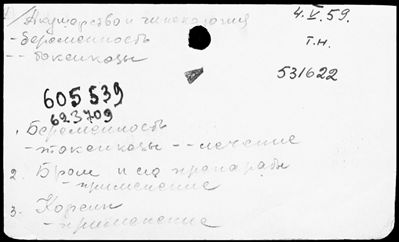 Акушерство и гинекология
4.V.59.
-беременность
т.н.
-- токсикозы
531622
605539
623709
1. Беременность
-токсикозы -- лечение
2. Бром и его препараты
-применение
3. Кофеин
-применение